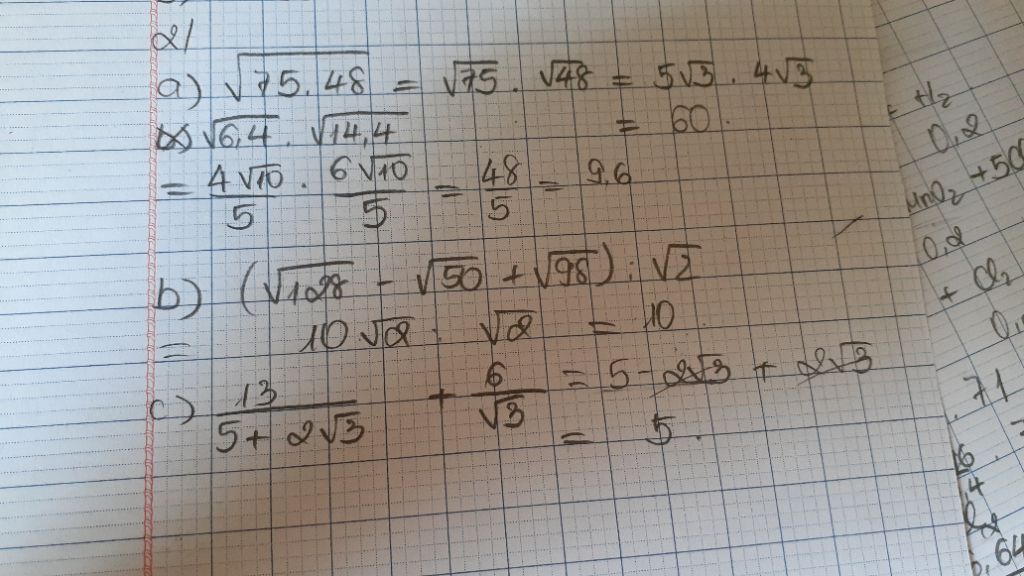 2/
a) √75.48 = √75 . √48 = 5√3 . 4√3
= 60.
√6,4 . √14,4
= 4√10/5 . 6√10/5 = 48/5 = 9,6
b) (√128 - √50 + √98) : √2
= 10√2 : √2 = 10
c) 13/(5 + 2√3) + 6/√3 = 5 - 2√3 + 2√3
= 5.
+ H2
0,2
MnO2 + 50
0,2
+ Cl2
71
64